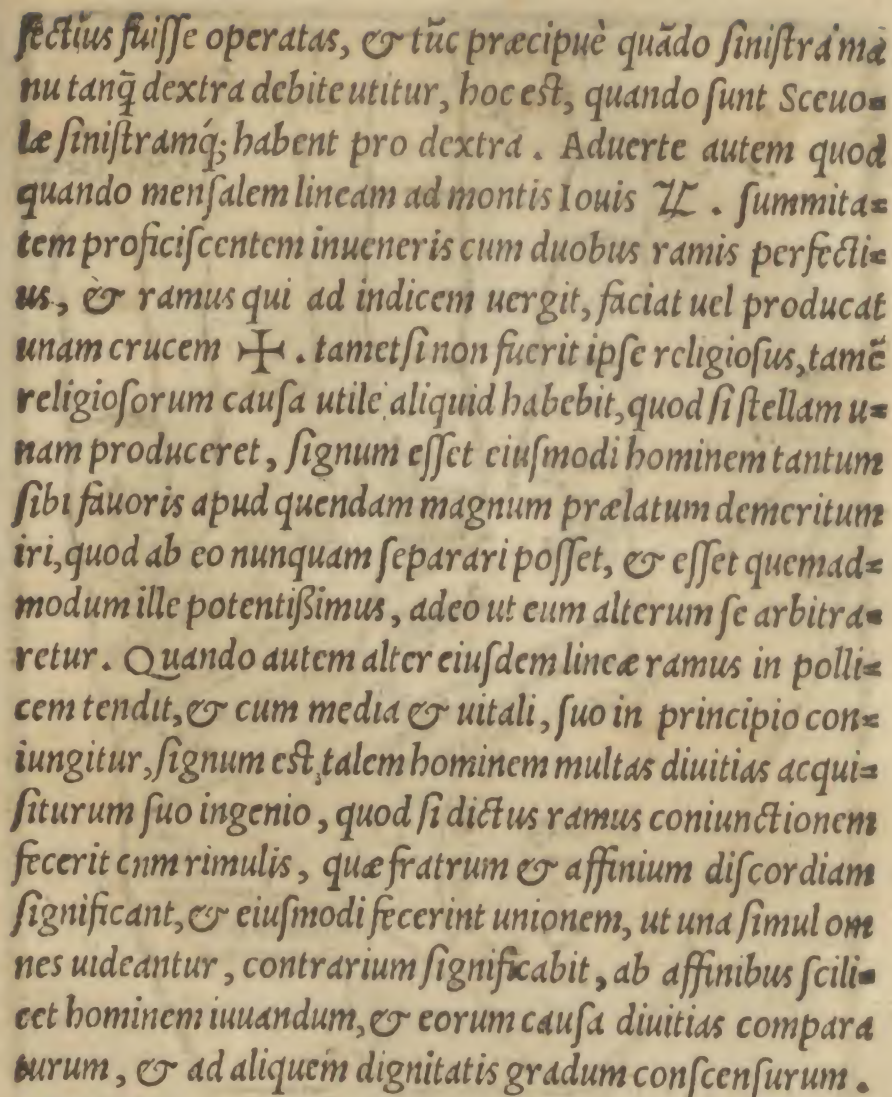 fectiùs fuiſſe operatas, & tũc præcipuè quãdo ſiniſtra ma
nu tanq̃ dextra debite utitur, hoc eſt, quando ſunt Sceuo=
læ ſiniſtramq́; habent pro dextra. Aduerte autem quod
quando menſalem lineam ad montis Iouis ♃. ſummita=
tem proficiſcentem inueneris cum duobus ramis perfecti=
us, & ramus qui ad indicem uergit, faciat uel producat
unam crucem ✢. tametſi non fuerit ipſe religioſus, tamẽ
religioſorum cauſa utile aliquid habebit, quod ſi ſtellam u=
nam produceret, ſignum eſſet eiuſmodi hominem tantum
ſibi fauoris apud quendam magnum prælatum demeritum
iri, quod ab eo nunquam ſeparari poſſet, & eſſet quemad=
modum ille potentißimus, adeo ut eum alterum ſe arbitra=
retur. Quando autem alter eiuſdem lineæ ramus in polli=
cem tendit, & cum media & uitali, ſuo in principio con=
iungitur, ſignum eſt, talem hominem multas diuitias acqui=
ſiturum ſuo ingenio, quod ſi dictus ramus coniunctionem
fecerit cnm rimulis, quæ fratrum & affinium diſcordiam
ſignificant, & eiuſmodi fecerint unionem, ut una ſimul om
nes uideantur, contrarium ſignificabit, ab affinibus ſcili=
cet hominem iuuandum, & eorum cauſa diuitias compara
turum, & ad aliquem dignitatis gradum conſcenſurum.